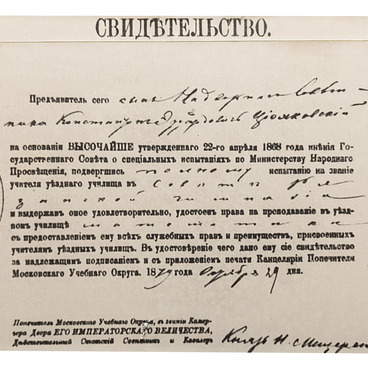 СВИДѢТЕЛЬСТВО.
Предъявитель сего сынъ Надворнаго Совѣт-
ника Константинъ Эдуардовичъ Ціолковскій
на основаніи ВЫСОЧАЙШЕ утвержденнаго 22-го апрѣля 1868 года мнѣнія Го-
сударственнаго Совѣта о спеціальныхъ испытаніяхъ по Министерству Народнаго
Просвѣщенія, подвергшись полному испытанію на званіе
учителя уѣзднаго училища въ Совѣтѣ Ря-
занской гимназіи
и выдержавъ оное удовлетворительно, удостоенъ права на преподаваніе въ уѣзд-
номъ училищѣ математики
съ предоставленіемъ ему всѣхъ служебныхъ правъ и преимуществъ, присвоенныхъ
учителямъ уѣздныхъ училищъ. Въ удостовѣреніе чего дано ему сіе свидѣтельство
за надлежащимъ подписаніемъ и съ приложеніемъ печати Канцеляріи Попечителя
Московскаго Учебнаго Округа. 1879 года Октября 29 дня.
Попечитель Московскаго Учебнаго Округа, въ званіи Камер-
гера Двора ЕГО ИМПЕРАТОРСКАГО ВЕЛИЧЕСТВА,
Дѣйствительный Статскій Совѣтникъ и Кавалеръ Князь Н. Мещерскі